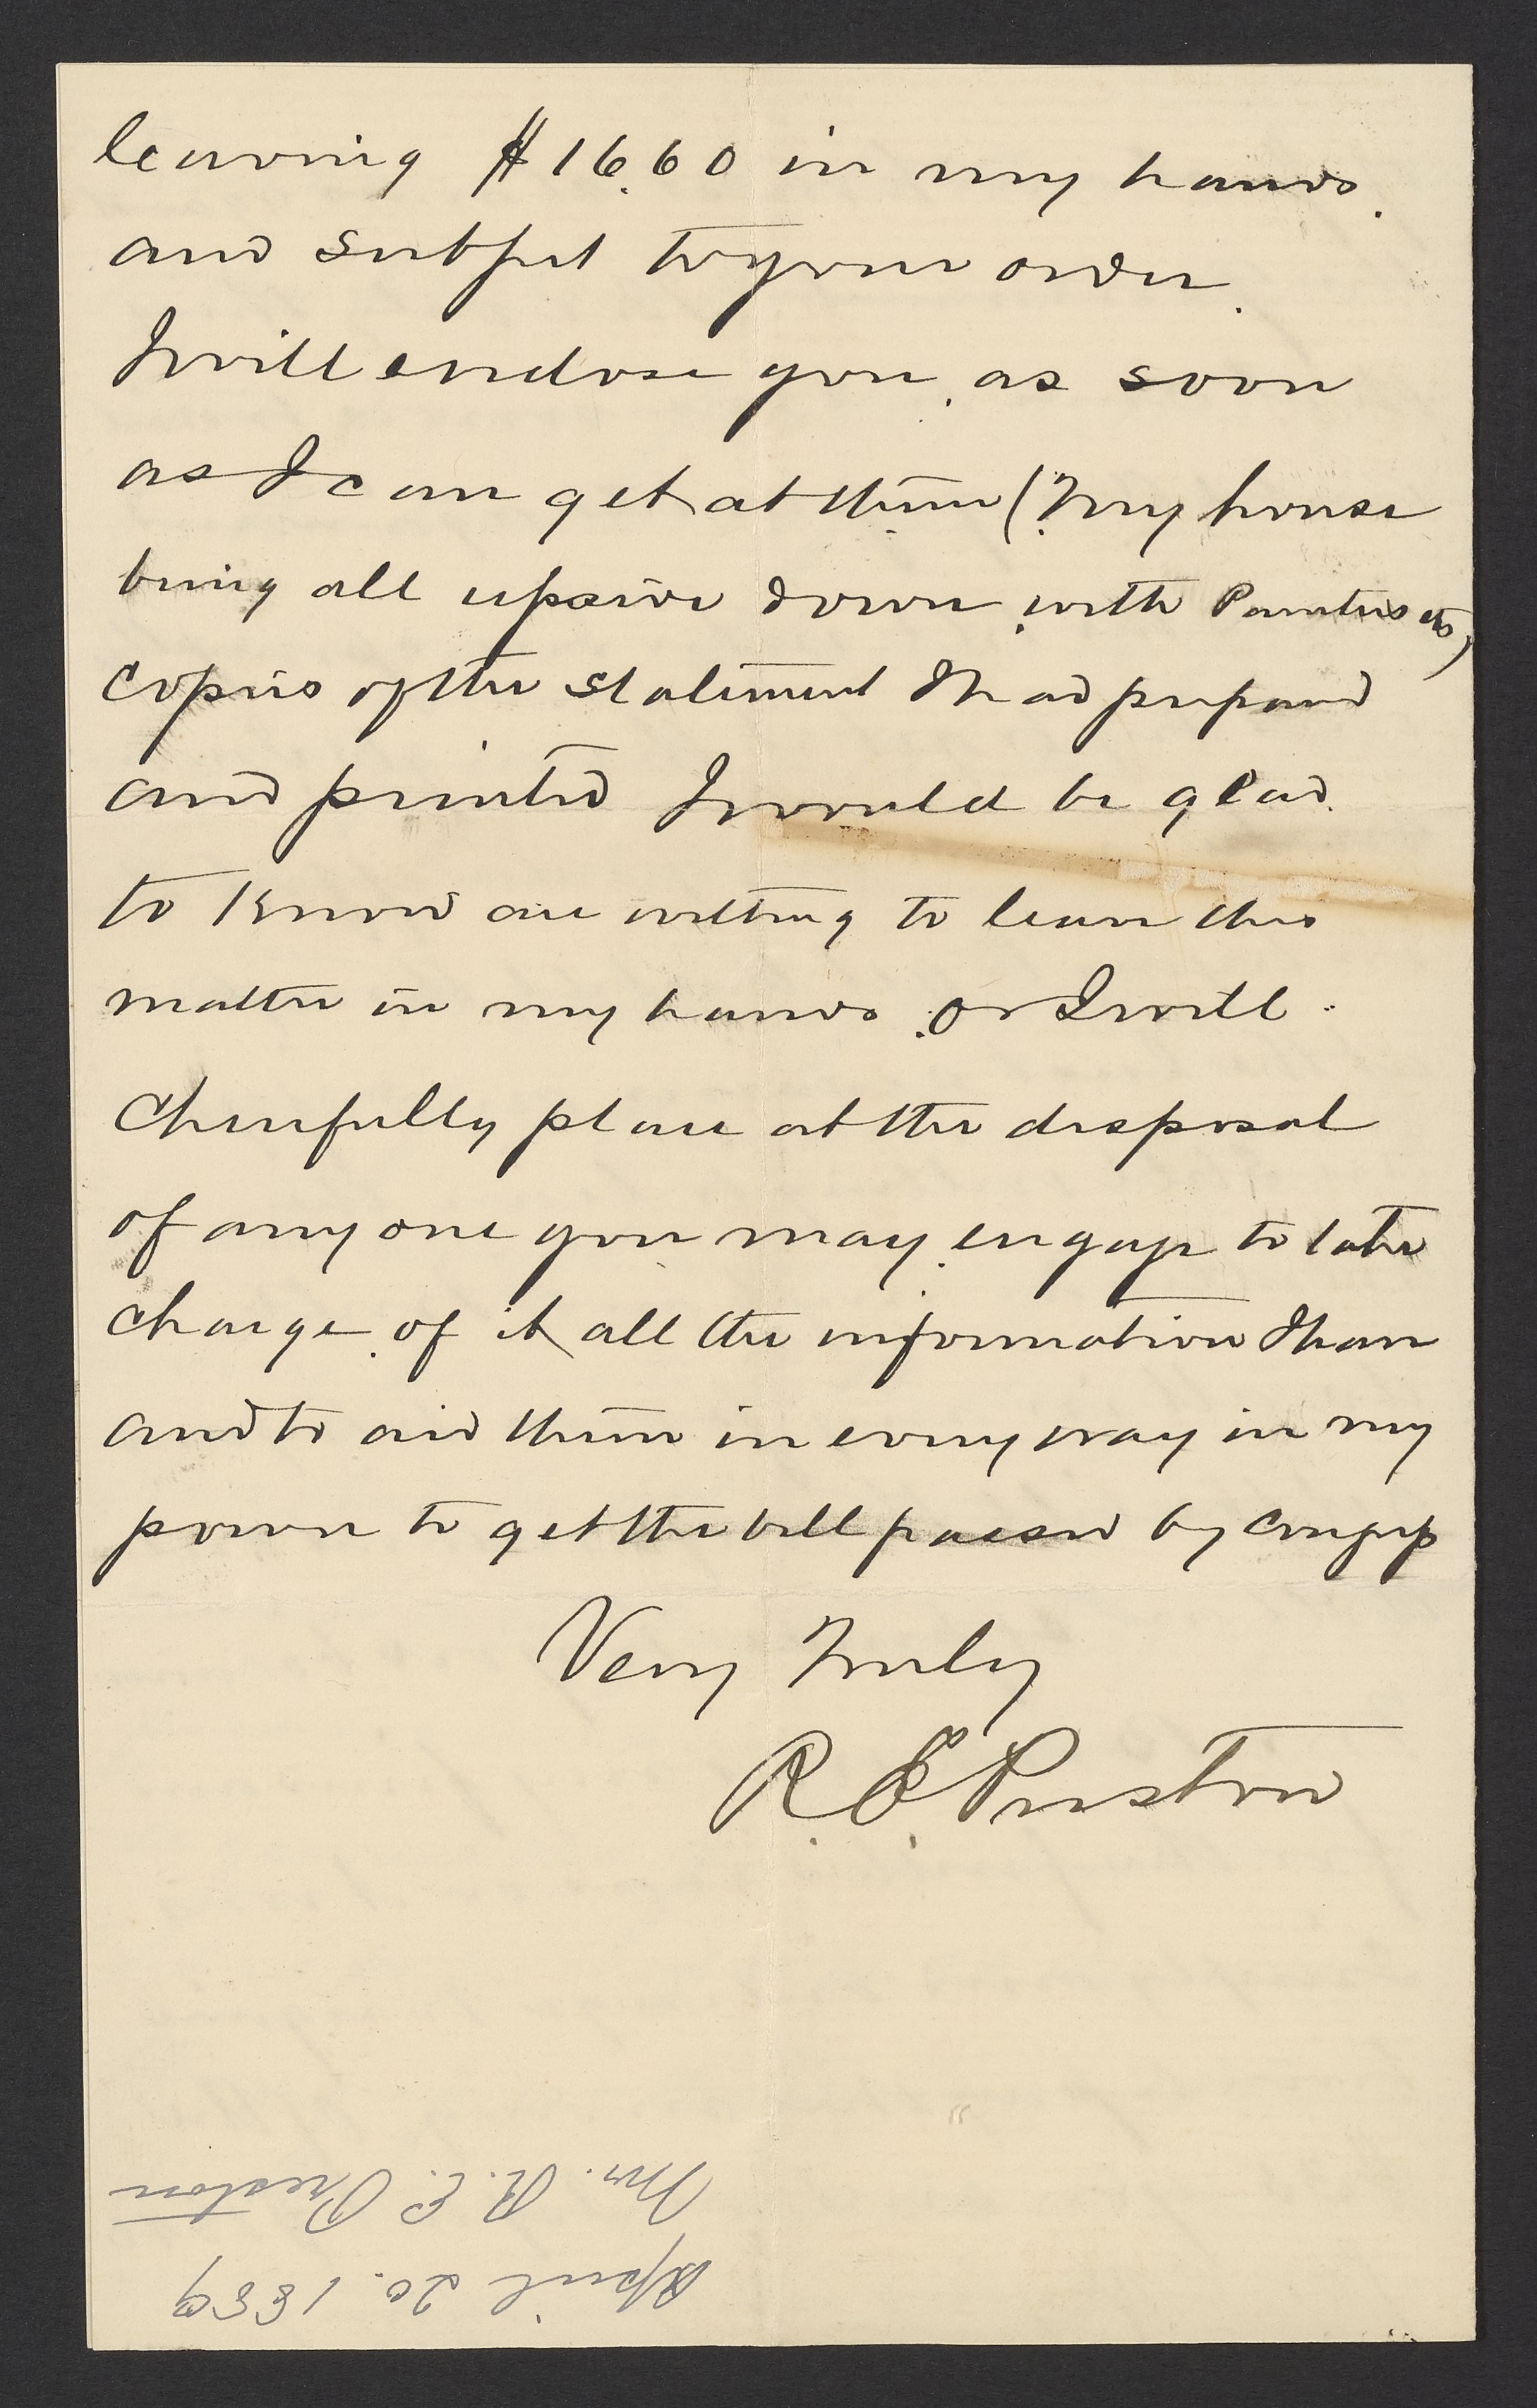 leaving $16.60 in my hands.
and subject to your order.
I will enclose you, as soon
as I can get at them (My house
being all upside down with Painters etc)
copies of the statement I had prepared
and printed I would be glad
to know are willing to leave this
matter in my hands, or I will
cheerfully place at the disposal
of any one you may engage to take
charge of it all the information I have
and to aid them in every way in my
power to get the bill passed by Congress
Very Truly
R. E. Preston
April 20. 1889
Mr. R. E. Preston